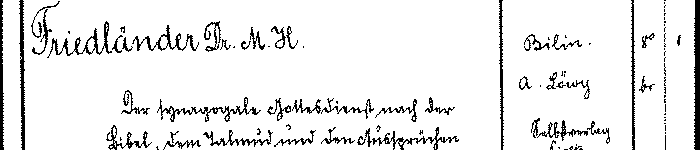 Friedländer Dr. M. H.
Bilin. 8° 1
A. Löwy br
Der synagogale Gottesdienst nach der
Bibel, dem Talmud und den Aussprüchen
Selbstverlag